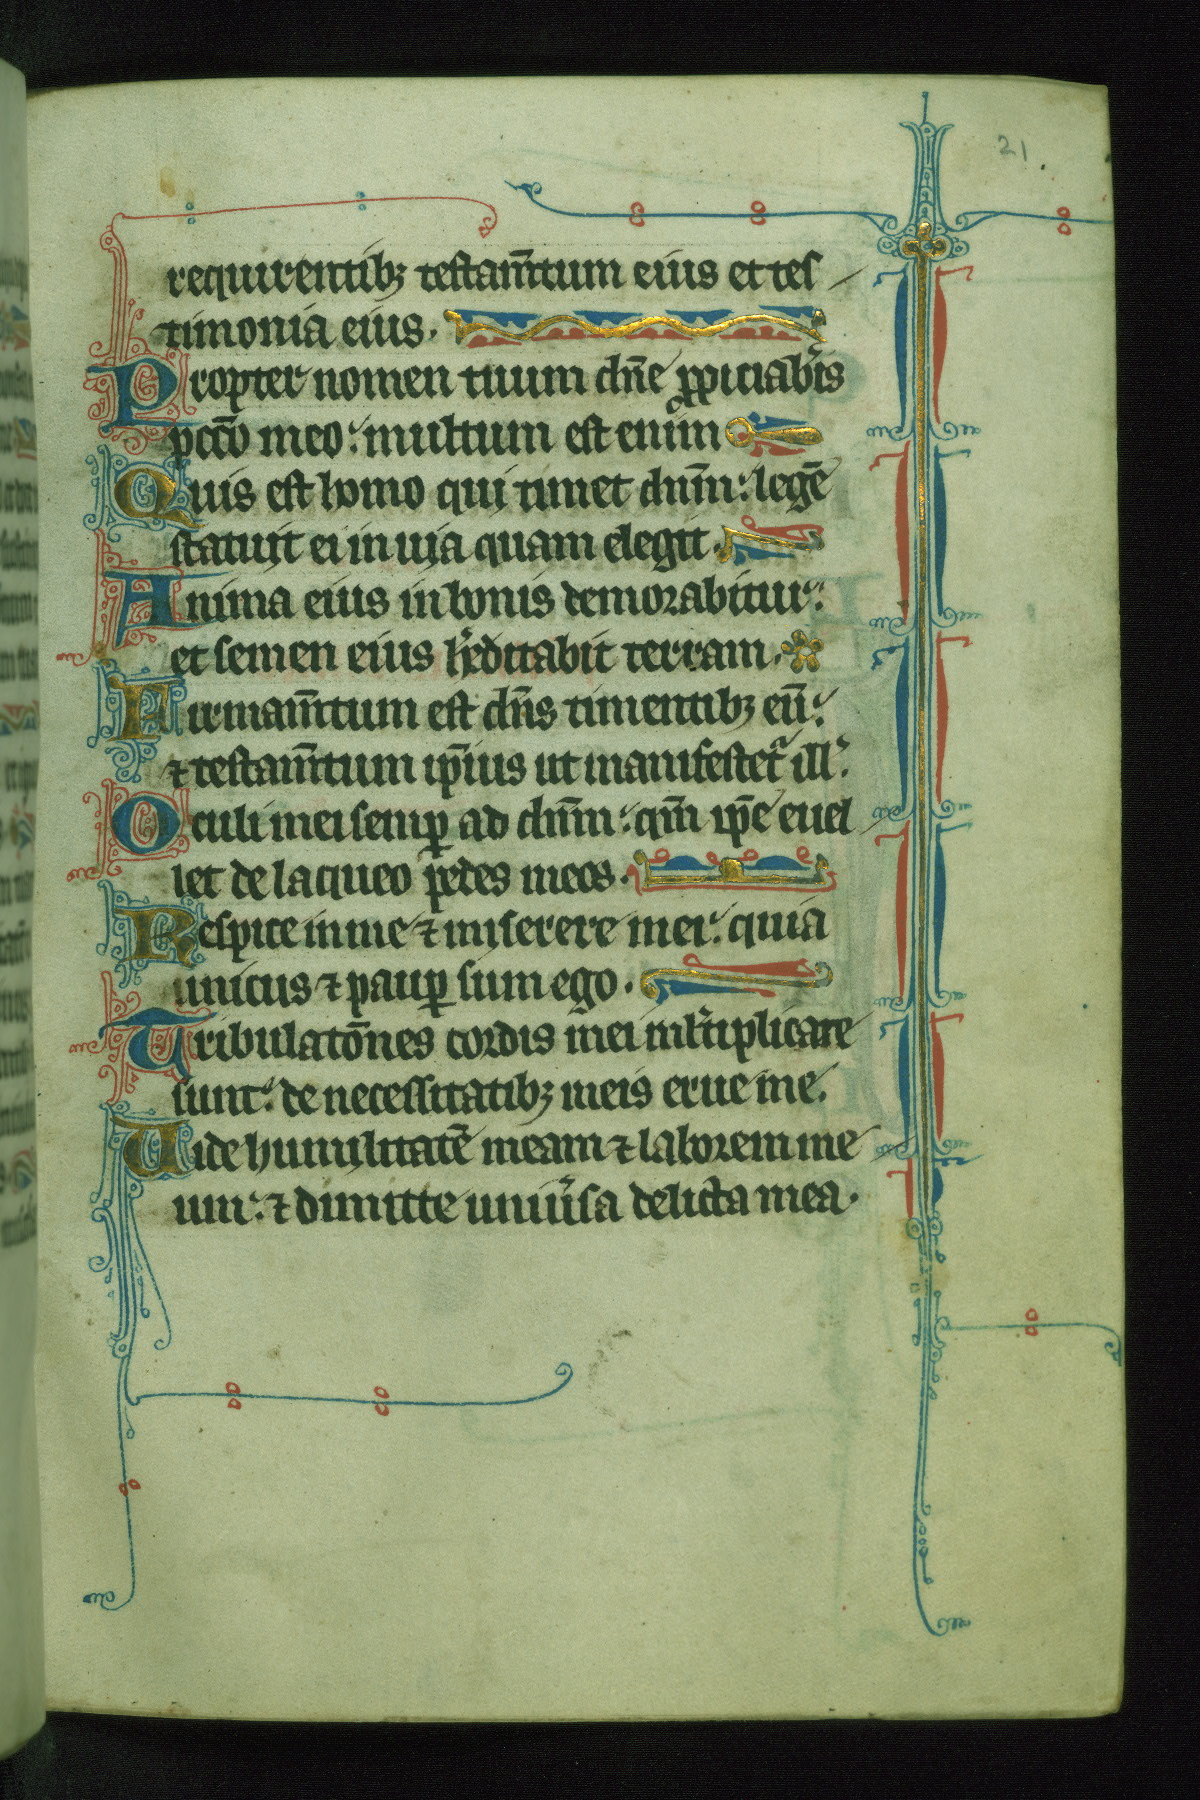 21.
requirentibꝫ testam̄tum eius et tes
timonia eius.
Propter nomen tuum dn̄e ꝓpiciab̓is
pccō meo: multum est enim
Quis est homo qui timet dn̄m: legē
statuit ei in uia quam elegit.
Anima eius in bonis demorabitur:
et semen eius h̓editabit terram.
Firmam̄tum est dn̄s timentibꝫ eū:
⁊ testam̄tum ip̄ius ut manifestet᷑ ill̓.
Oculi mei semꝑ ad dn̄m: qm̄ ip̄e euel
let de laqueo pedes meos.
Respice in me ⁊ miserere mei: quia
unicus ⁊ pauꝑ sum ego.
Tribulatōnes cordis mei ml̓tiplicate
sunt: de necessitatibꝫ meis erue me.
Uide humilitatē meam ⁊ laborem me
um: ⁊ dimitte uniu̓sa delicta mea.